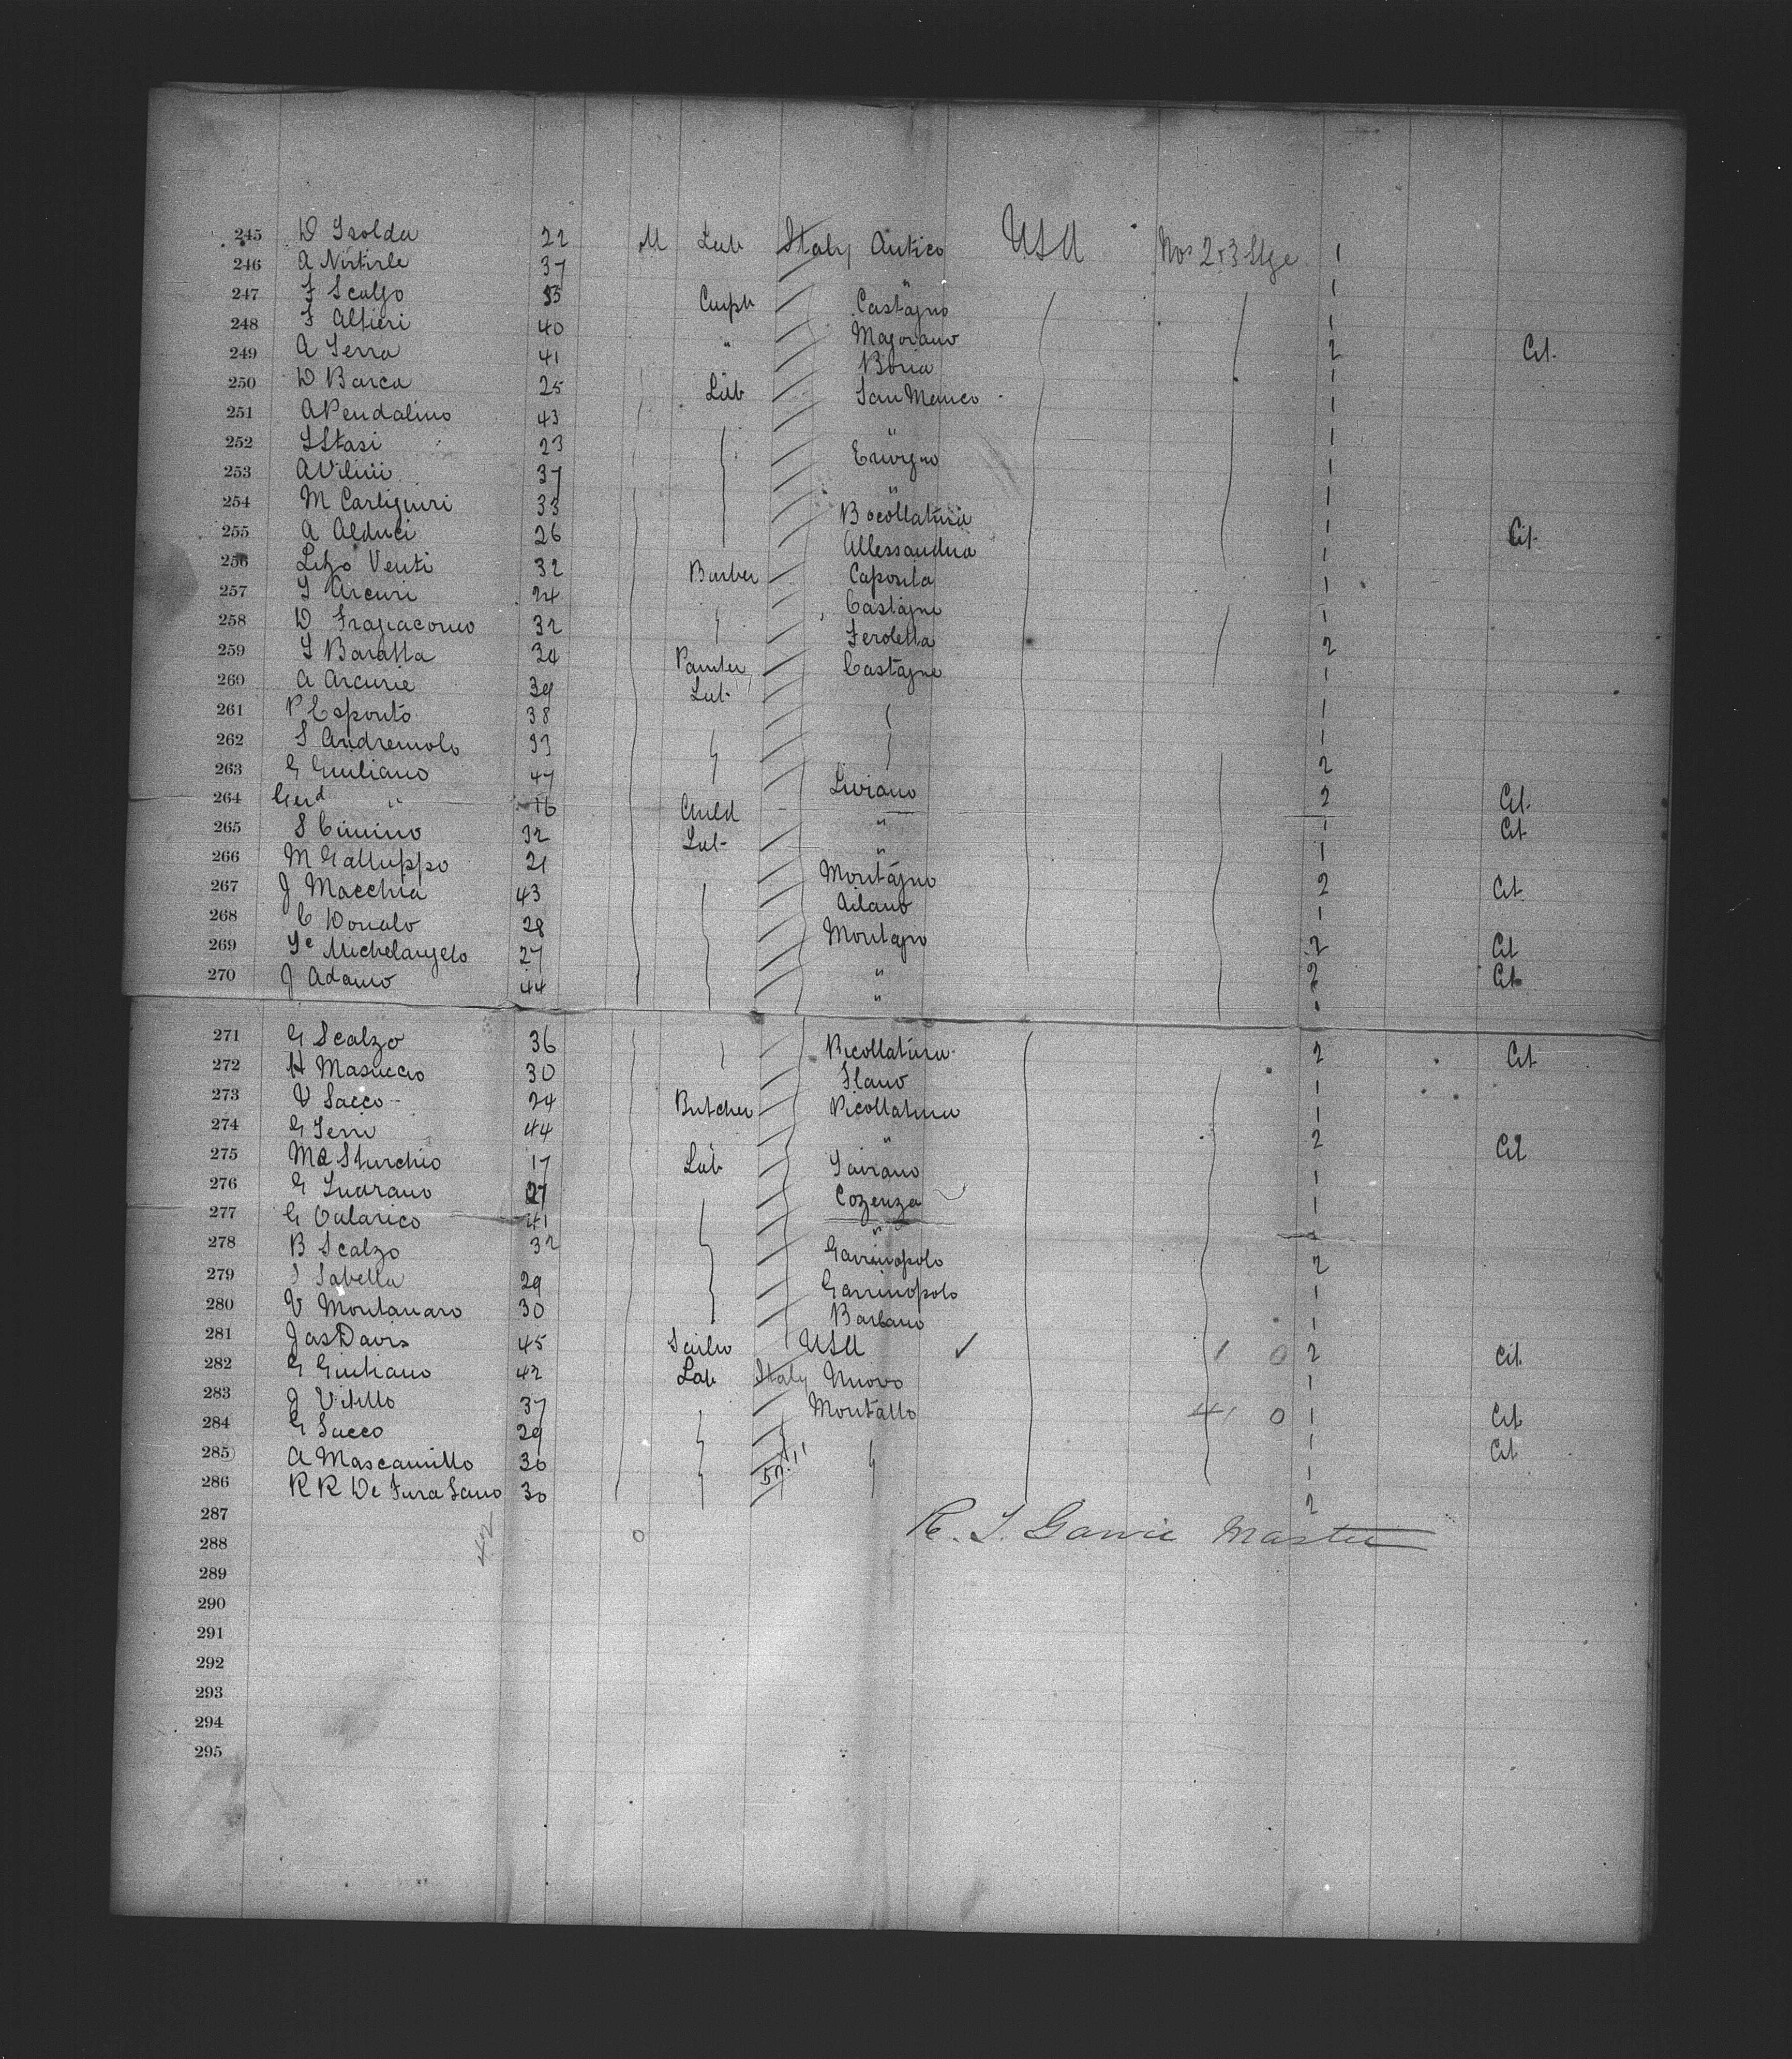 245 D Isolda 22 M Lab Italy Antico USA Nos 2 & 3 Stge 1
246 A Nirtirle 37 " 1
247 F Scalzo 35 Carptr Castagno 1
248 F Altieri 40 " Majorano 2 Cit.
249 A Serra 41 Boria 1
250 D Barca 25 Lab San Manco 1
251 A Pendalino 43 " 1
252 S Stasi 23 Erivgno 1
253 A Vilini 37 " 1
254 M Carliguiri 33 Bocollatura 1 Cit.
255 A Alduci 26 Allessandria 1
256 Lizo Venti 32 Barber Caposita 1
257 S Arcuri 24 Castagne 1
258 D Frapiacomo 32 Feroletta 2
259 S Baratta 34 Painter Castagne 1
260 A Arcurie 39 Lab 1
261 P Esposito 38 1
262 S Andremolo 33 2
263 G Giuliano 47 Liviano 2 Cit.
264 Gerd " 16 Child " 1 Cit
265 S Cimino 32 Lab " 1
266 M Galluppo 21 Montagno 2 Cit
267 J Macchia 43 Ailano 1
268 C Donato 28 Montagno 2 Cit
269 Se Michelangelo 27 " 2 Cit
270 J Adamo 44 " 1
271 G Scalzo 36 Picollatura 2 Cit
272 H Masuccio 30 Slano 1
273 V Sacco 24 Butcher Picollatura 1
274 G Serri 44 " 2 Cit
275 Ma Sturchio 17 Lab Soirano 1
276 G Luarano 27 Cozenza 1
277 G Oalarico 41 " 1
278 B Scalzo 32 Garrinopolo 2
279 S Sabella 29 Garrinopolo 1
280 V Montanaro 30 Barbano 1
281 Jas Davis 45 Sailor USA ✓ 1 0 2 Cit
282 G Giuliano 42 Lab Italy Nuovo 1
283 J Vitillo 37 Montallo 41 0 1 Cit
284 G Sacco 29 1 Cit
285 A Mascamillo 36 1
286 R R De Fura Sano 30 2
287 R. S. Garvie Master
288 42 0
289
290
291
292
293
294
295